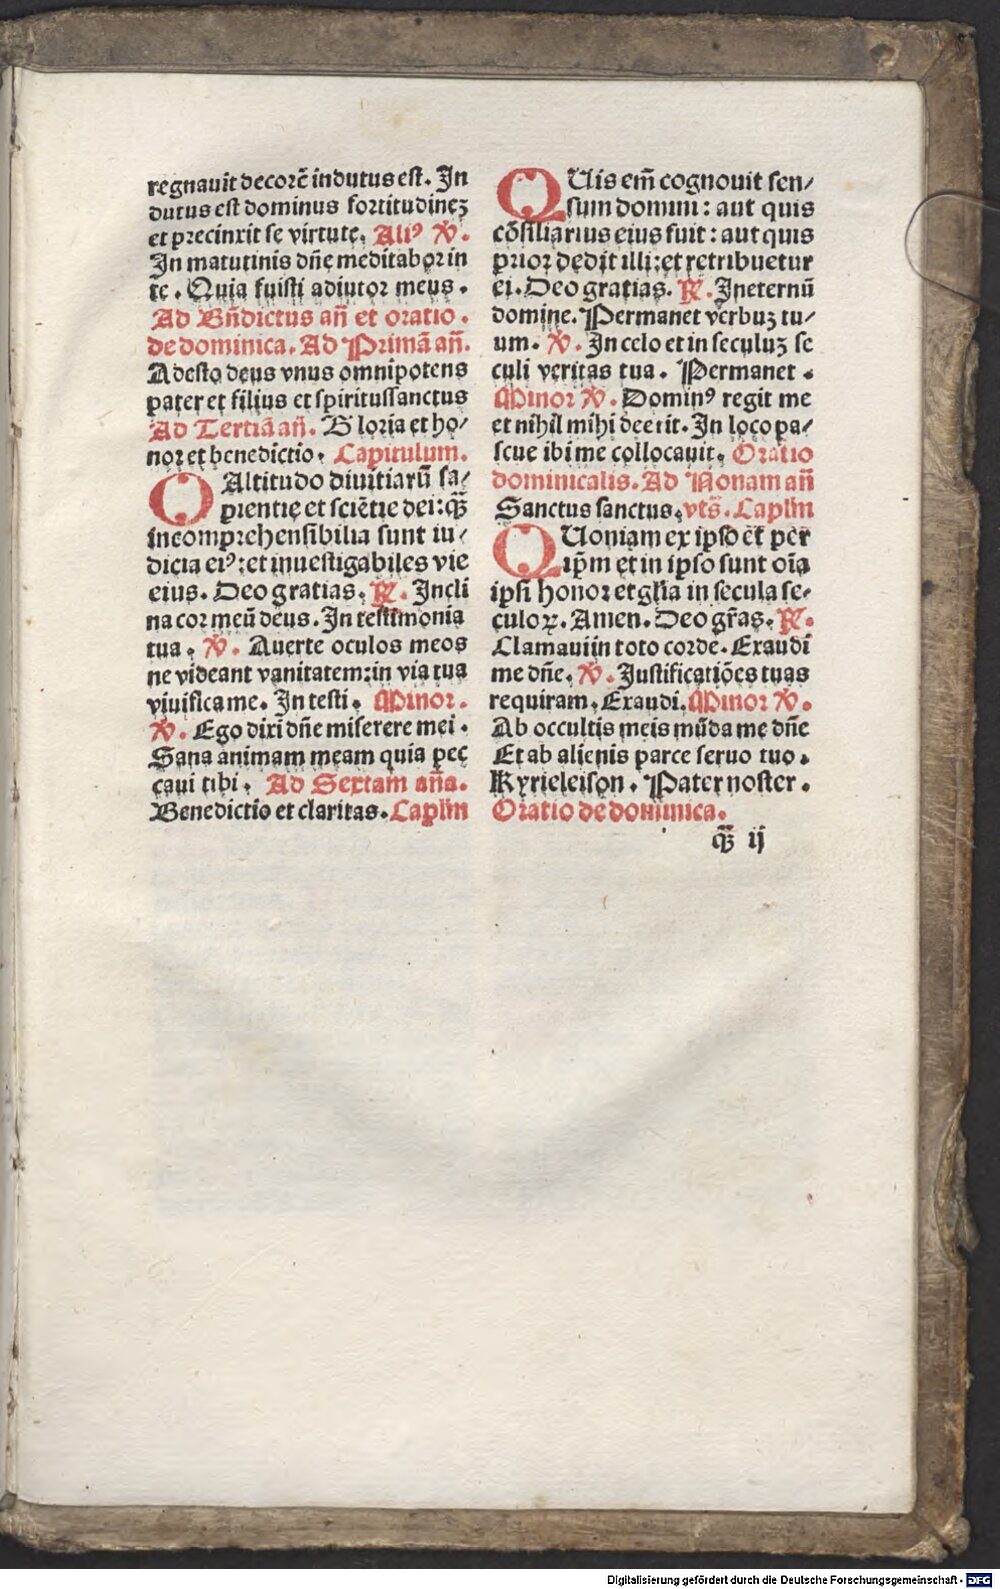 regnauit decorē indutus est. In
dutus est dominus fortitudineꝫ
et precinxit se virtute. Aliꝰ ꝟ.
In matutinis dn̄e meditabor in
te. Quia fuisti adiutor meus.
Ad Bn̄dictus an̄ et oratio.
de dominica. Ad Primā an̄.
Adesto deus vnus omnipotens
pater et filius et spiritussanctus
Ad Tertiā an̄. Gloria et ho⸗
nor et benedictio. Capitulum.
O Altitudo diuitiarū sa⸗
pientie et sciētie dei: qꝫ̄
incomprehensibilia sunt iu⸗
dicia eiꝰ: et inuestigabiles vie
eius. Deo gratias. ℞. Incli
na cor meū deus. In testimonia
tua. ꝟ. Auerte oculos meos
ne videant vanitatem: in via tua
viuifica me. In testi. Minor.
ꝟ. Ego dixi dn̄e miserere mei.
Sana animam meam quia pec
caui tibi. Ad Sextam an̄a.
Benedictio et claritas. Caplm̄
QUis em̄ cognouit sen⸗
sum domini: aut quis
cōsiliarius eius fuit: aut quis
prior dedit illi: et retribuetur
ei. Deo gratias. ℞. In eternū
domine. Permanet verbuꝫ tu⸗
um. ꝟ. In celo et in seculuꝫ se
culi veritas tua. Permanet.
Minor ꝟ. Dominꝰ regit me
et nihil mihi deerit. In loco pa⸗
scue ibi me collocauit. Oratio
dominicalis. Ad Nonam an̄
Sanctus sanctus. vts̄. Caplm̄
QUoniam ex ipso et̄ per
ip̄m et in ipso sunt oīa
ipsi honor et gl̄ia in secula se⸗
culoꝝ. Amen. Deo gr̄as. ℞.
Clamaui in toto corde. Exaudi
me dn̄e. ꝟ. Justificatiōes tuas
requiram. Exaudi. Minor ꝟ.
Ab occultis meis mūda me dn̄e
Et ab alienis parce seruo tuo.
Kyrieleison. Pater noster.
Oratio de dominica.
qꝫ̄ ij
Digitalisierung gefördert durch die Deutsche Forschungsgemeinschaft - DFG